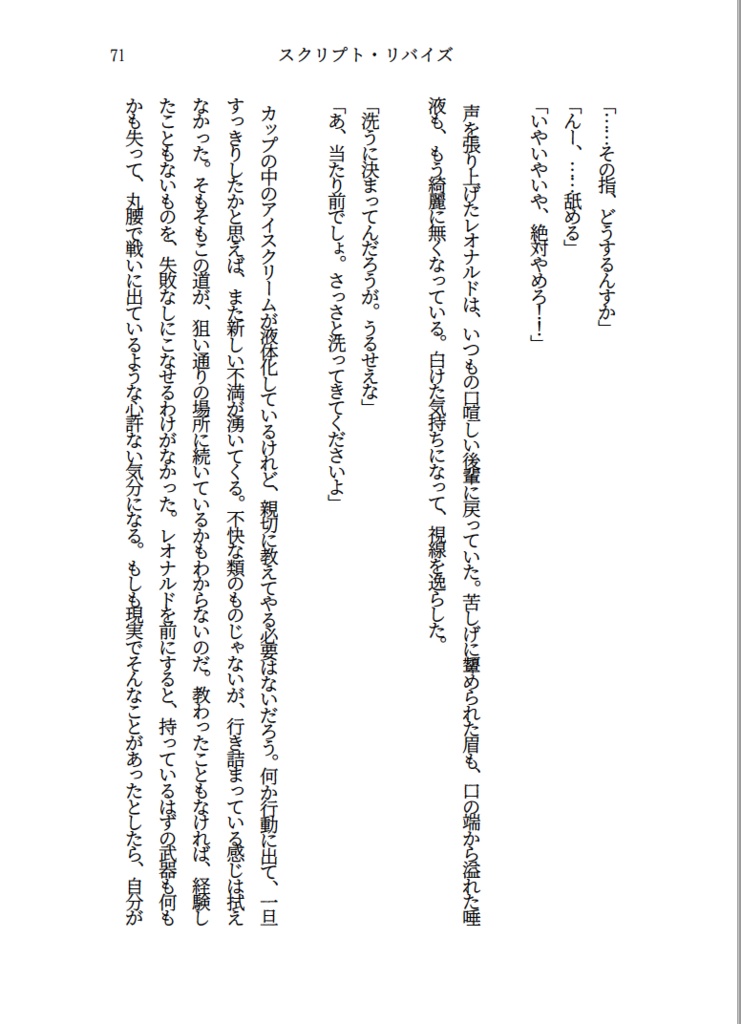 71
スクリプト・リバイズ
「……その指、どうするんすか」
「んー、……舐める」
「いやいやいや、絶対やめろ！！」
声を張り上げたレオナルドは、いつもの口喧しい後輩に戻っていた。苦しげに顰められた眉も、口の端から溢れた唾
液も、もう綺麗に無くなっている。白けた気持ちになって、視線を逸らした。
「洗うに決まってんだろうが。うるせえな」
「あ、当たり前でしょ。さっさと洗ってきてくださいよ」
カップの中のアイスクリームが液体化しているけれど、親切に教えてやる必要はないだろう。何か行動に出て、一旦
すっきりしたかと思えば、また新しい不満が湧いてくる。不快な類のものじゃないが、行き詰まっている感じは拭え
なかった。そもそもこの道が、狙い通りの場所に続いているかもわからないのだ。教わったこともなければ、経験し
たこともないものを、失敗なしにこなせるわけがなかった。レオナルドを前にすると、持っているはずの武器も何も
かも失って、丸腰で戦いに出ているような心許ない気分になる。もしも現実でそんなことがあったとしたら、自分が